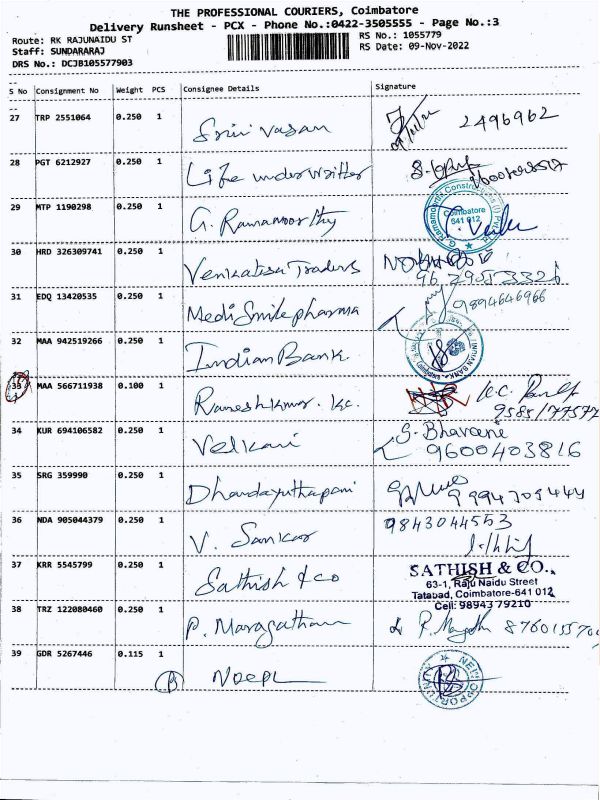 THE PROFESSIONAL COURIERS, Coimbatore
Delivery Runsheet - PCX - Phone No.:0422-3505555 - Page No.:3
Route: RK RAJUNAIDU ST
RS No.: 1055779
Staff: SUNDARARAJ
RS Date: 09-Nov-2022
DRS No.: DCJB105577903
S No Consignment No Weight PCS Consignee Details Signature
27 TRP 2551064 0.250 1 Srinivasan 2496962
28 PGT 6212927 0.250 1 Life underwriter
29 MTP 1190298 0.250 1 G. Ramamoorthy
G. Ramamoorthi Constructions (I) Pvt
Coimbatore
641 012
30 HRD 326309741 0.250 1 Venkatisa Traders
31 EDQ 13420535 0.250 1 Medi Smile pharma 9894646966
32 MAA 942519266 0.250 1 Indian Bank
INDIAN BANK
33 MAA 566711938 0.100 1 Rameshkumar. Kc.
9585/77577
34 KUR 694106582 0.250 1 Velkani S. Bhavani
9600403816
35 SRG 359990 0.250 1 Dhandayuthapani 9994709444
36 NDA 905044379 0.250 1 V. Sankar 9843044553
37 KRR 5545799 0.250 1 Sathish & co
SATHISH & CO.,
63-1, Raju Naidu Street
Tatabad, Coimbatore-641 012
Cell: 98943 79210
38 TRZ 122080460 0.250 1 P. Maragatham
39 GDR 5267446 0.115 1 NOEPL